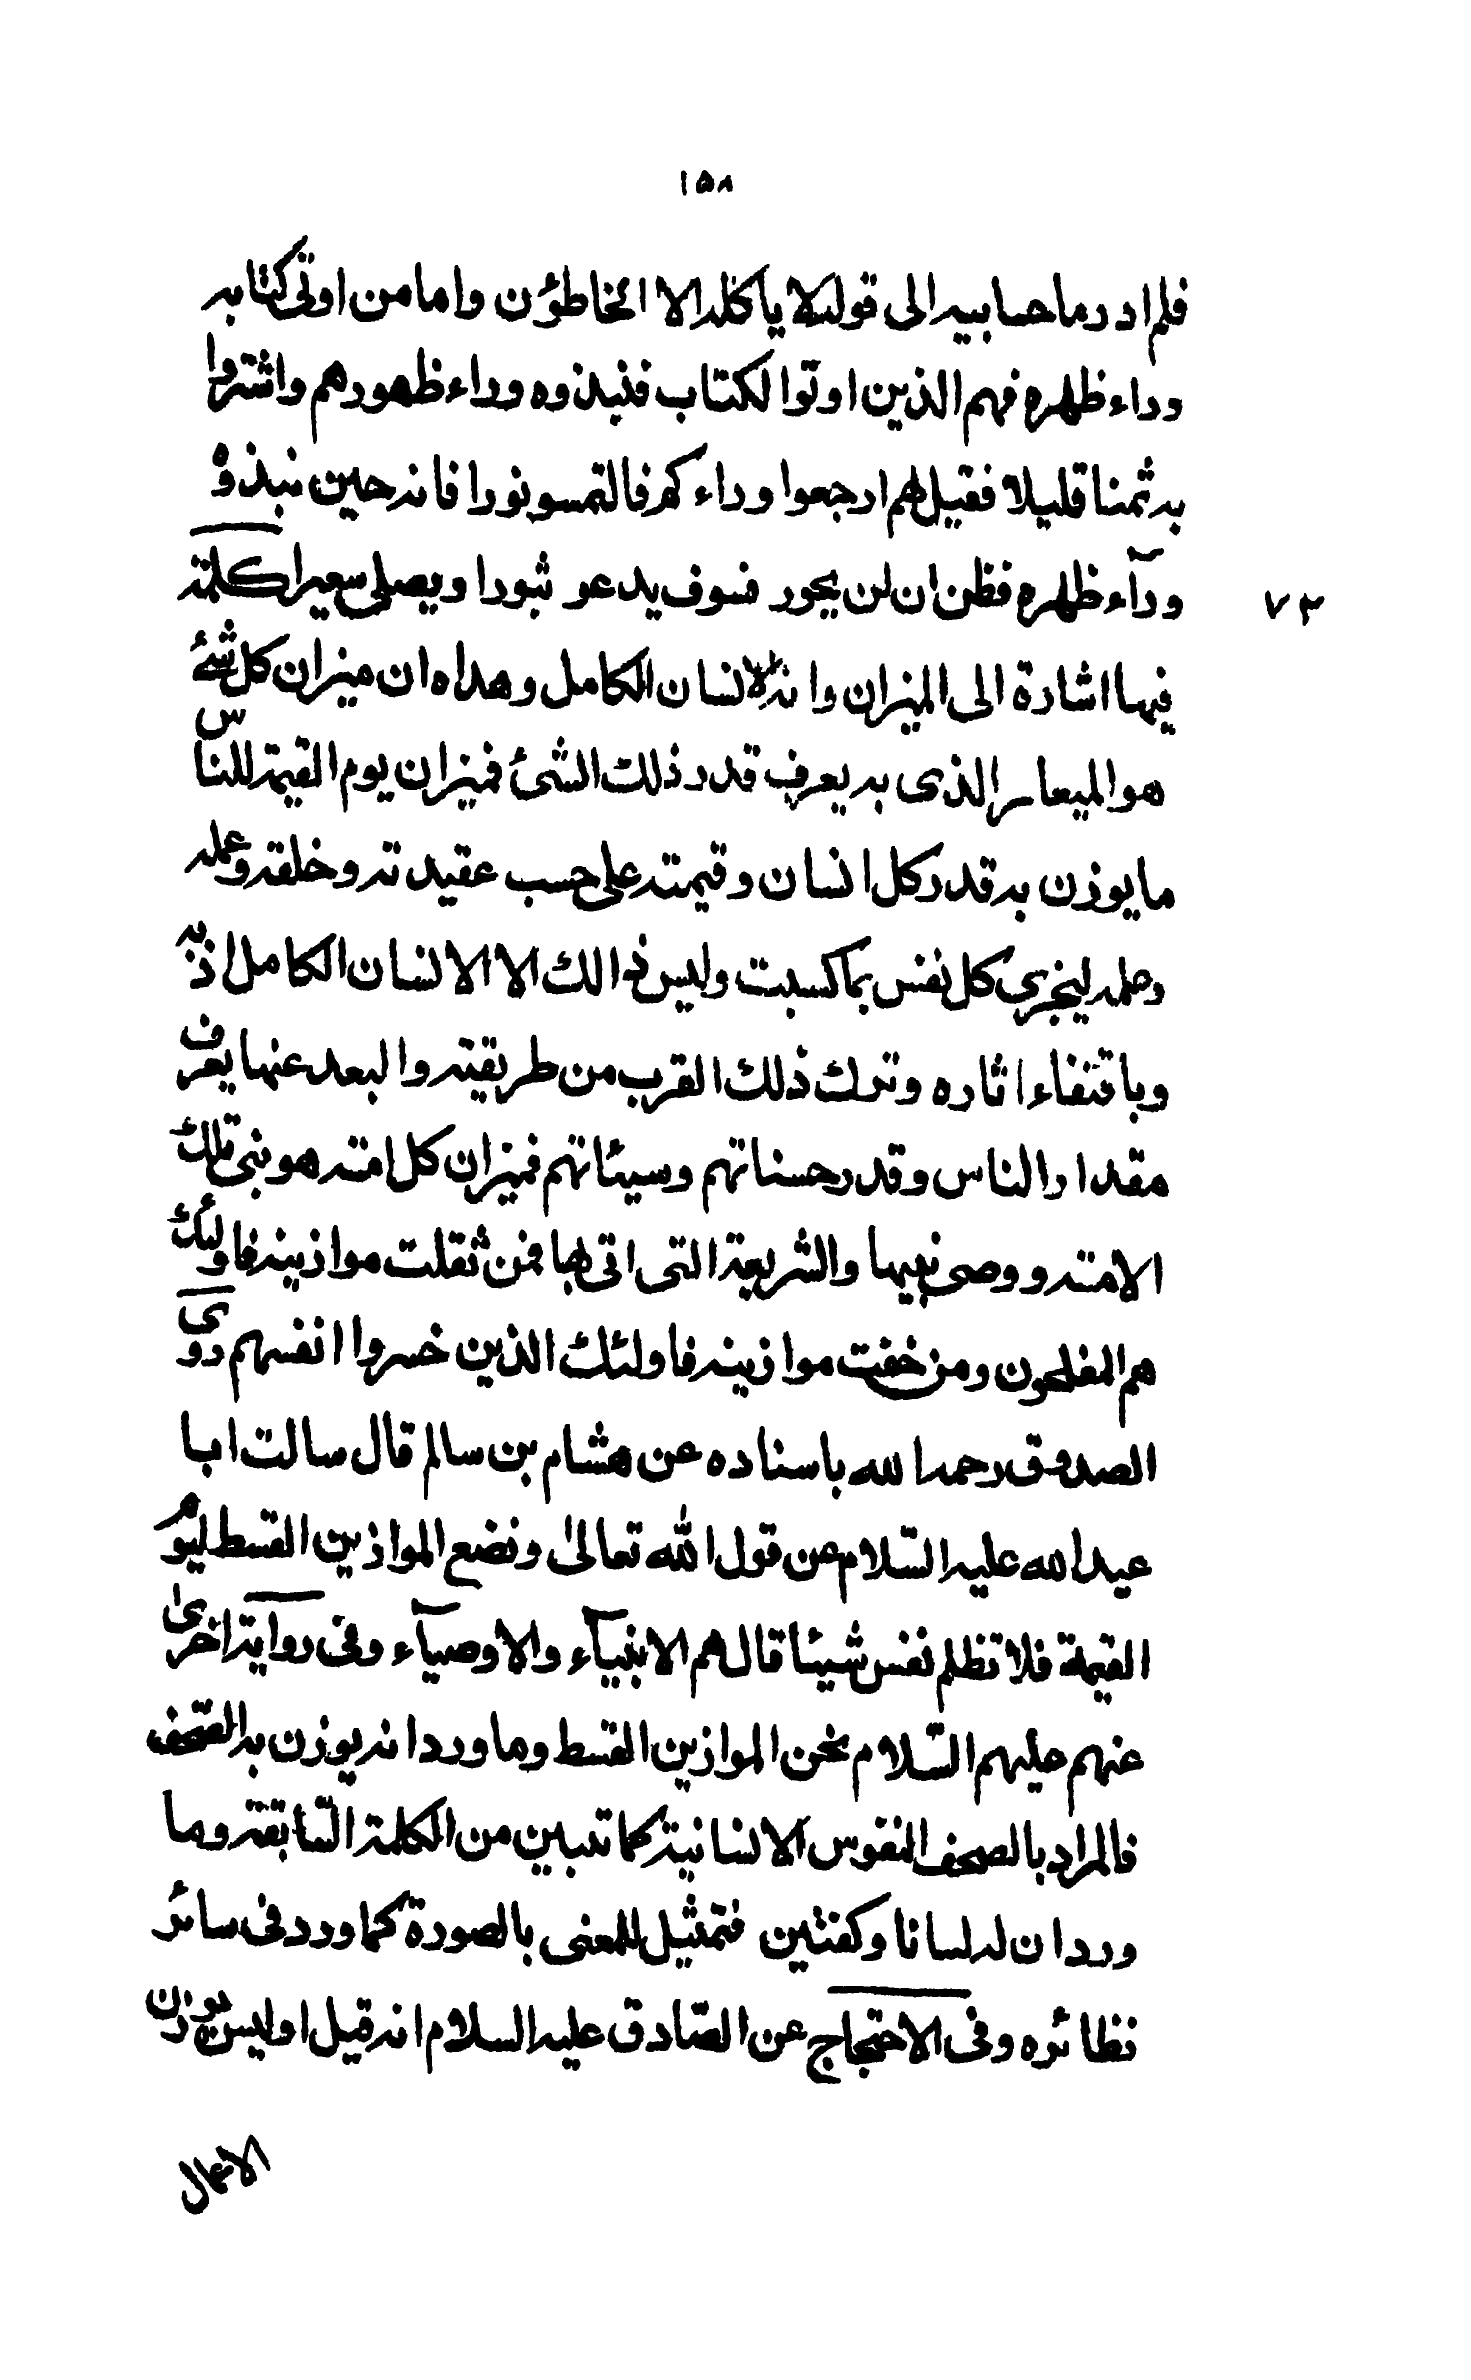 ١٥٨
فلم ادر ما حسابيه الى قوله لا ياكله الا الخاطؤن واما من اوتى كتابه
وراء ظهره فهم الذين اوتوا لكتاب فنبذوه وراء ظهورهم واشتروا
به ثمنا قليلا فقيل لهم ارجعوا وراءكم فالتمسو نورا فانه حين نبذه
ورآء ظهره فظن ان لن يحور فسوف يدعو ثبورا ويصلى سعيرا كلمة
٧٣
فيها اشارة الى الميزان وانه الانسان الكامل وهداه ان ميزان كل شئ
هو المعيار الذى به يعرف قدر ذلك الشئ فميزان يوم القيمة للناس
ما يوزن به قدر كل انسان وقيمته على حسب عقيدته وخلقه وعمله
وعلمه ليجزى كل نفس بما كسبت وليس ذالك الا الانسان الكامل اذ به
وباقتفاء اثاره وترك ذلك القرب من طريقته والبعد عنها يعرف
مقدار الناس وقدر حسناتهم وسيئاتهم فميزان كل امته هو نبى تلك
الامته ووصى نبيها والشريعة التى اتى بها فمن ثقلت موازينه فاولئك
هم المفلحون ومن خفت موازينه فاولئك الذين خسروا انفسهم روى
الصدوق رحمه الله باسناده عن هشام بن سالم قال سالت ابا
عبد الله عليه السّلام عن قول الله تعالىٰ ونضع الموازين القسط ليوم
القيمة فلا تظلم نفس شيئا قال هم الانبيآء والاوصيآء وفى رواية اخرىٰ
عنهم عليهم السّلام نحن الموازين القسط وما ورد انه يوزن به الصّحف
فالمراد بالصحف النفوس الانسانية كما تبين من الكلمة السّابقة وما
ورد ان له لسانا وكفتين فتمثيل للمعنى بالصورة كما ورد فى سائر
نظائره وفى الاحتجاج عن الصّادق عليه السلام انه قيل اوليس يوزن
الاعمال